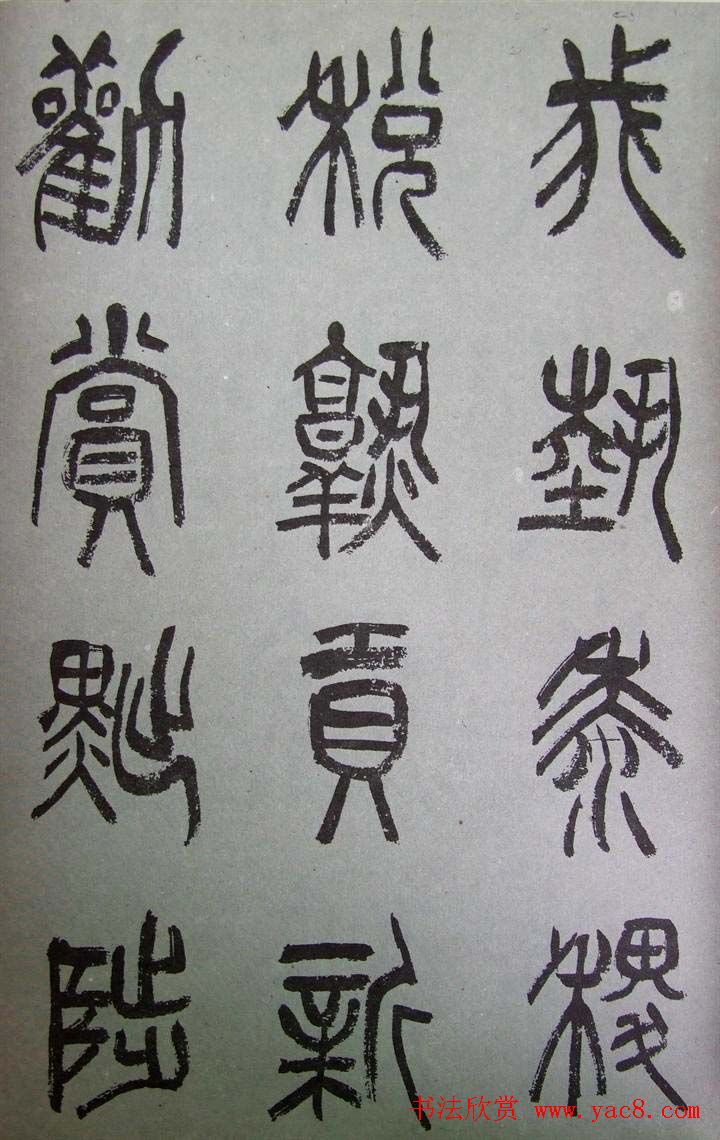 我蓺黍稷
稅孰貢新
勸賞黜陟
书法欣赏 www.yac8.com